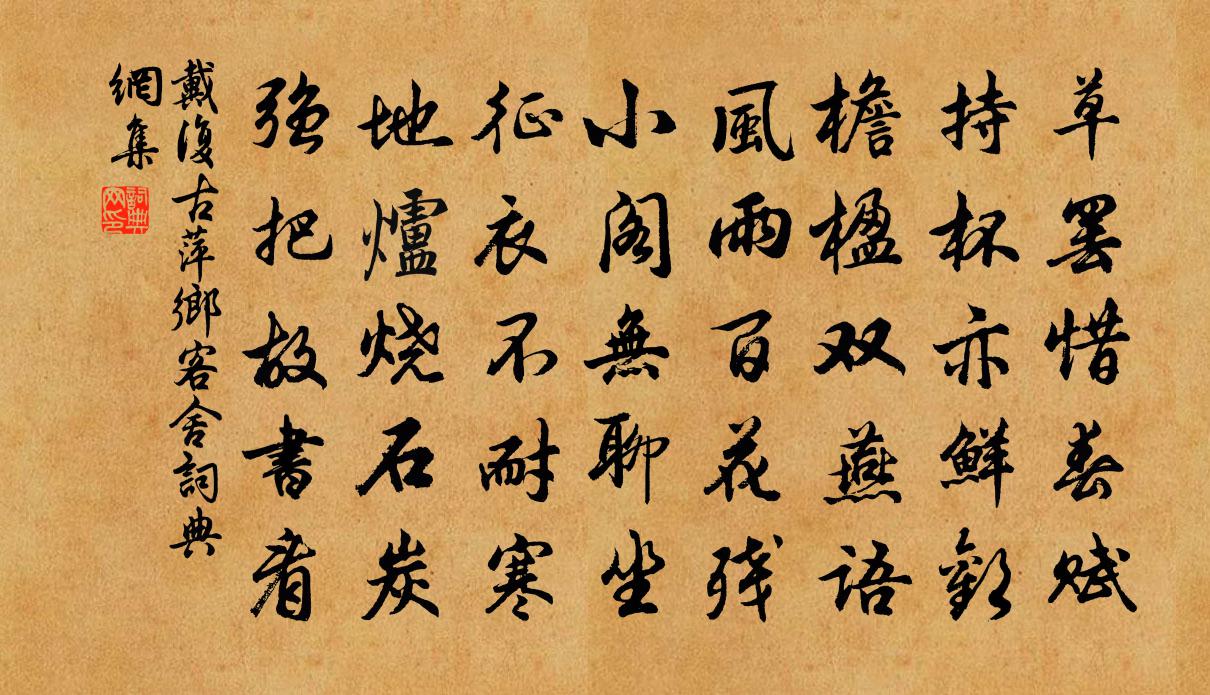 草罢惜春赋
持杯亦鲜歡
檐楹双燕語
風雨百花残
小阁無聊坐
征衣不耐寒
地爐烧石炭
強把故書看
戴復古萍鄉客舍詞典
網集
詞典
网印